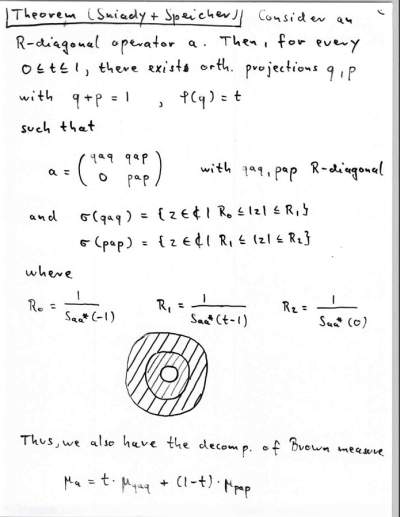 Theorem (Śniady + Speicher) Consider an
R-diagonal operator a. Then, for every
0 ≤ t ≤ 1, there exists orth. projections q, p
with q+p = 1 , φ(q) = t
such that
a = ( qaq qap
0 pap ) with qaq, pap R-diagonal
and σ(qaq) = {z ∈ ¢ | R₀ ≤ |z| ≤ R₁}
σ(pap) = {z ∈ ¢ | R₁ ≤ |z| ≤ R₂}
where
R₀ = 1/S_{aa*}(-1) R₁ = 1/S_{aa*}(t-1) R₂ = 1/S_{aa*}(0)
Thus, we also have the decomp. of Brown measure
μ_a = t · μ_{qaq} + (1-t) · μ_{pap}